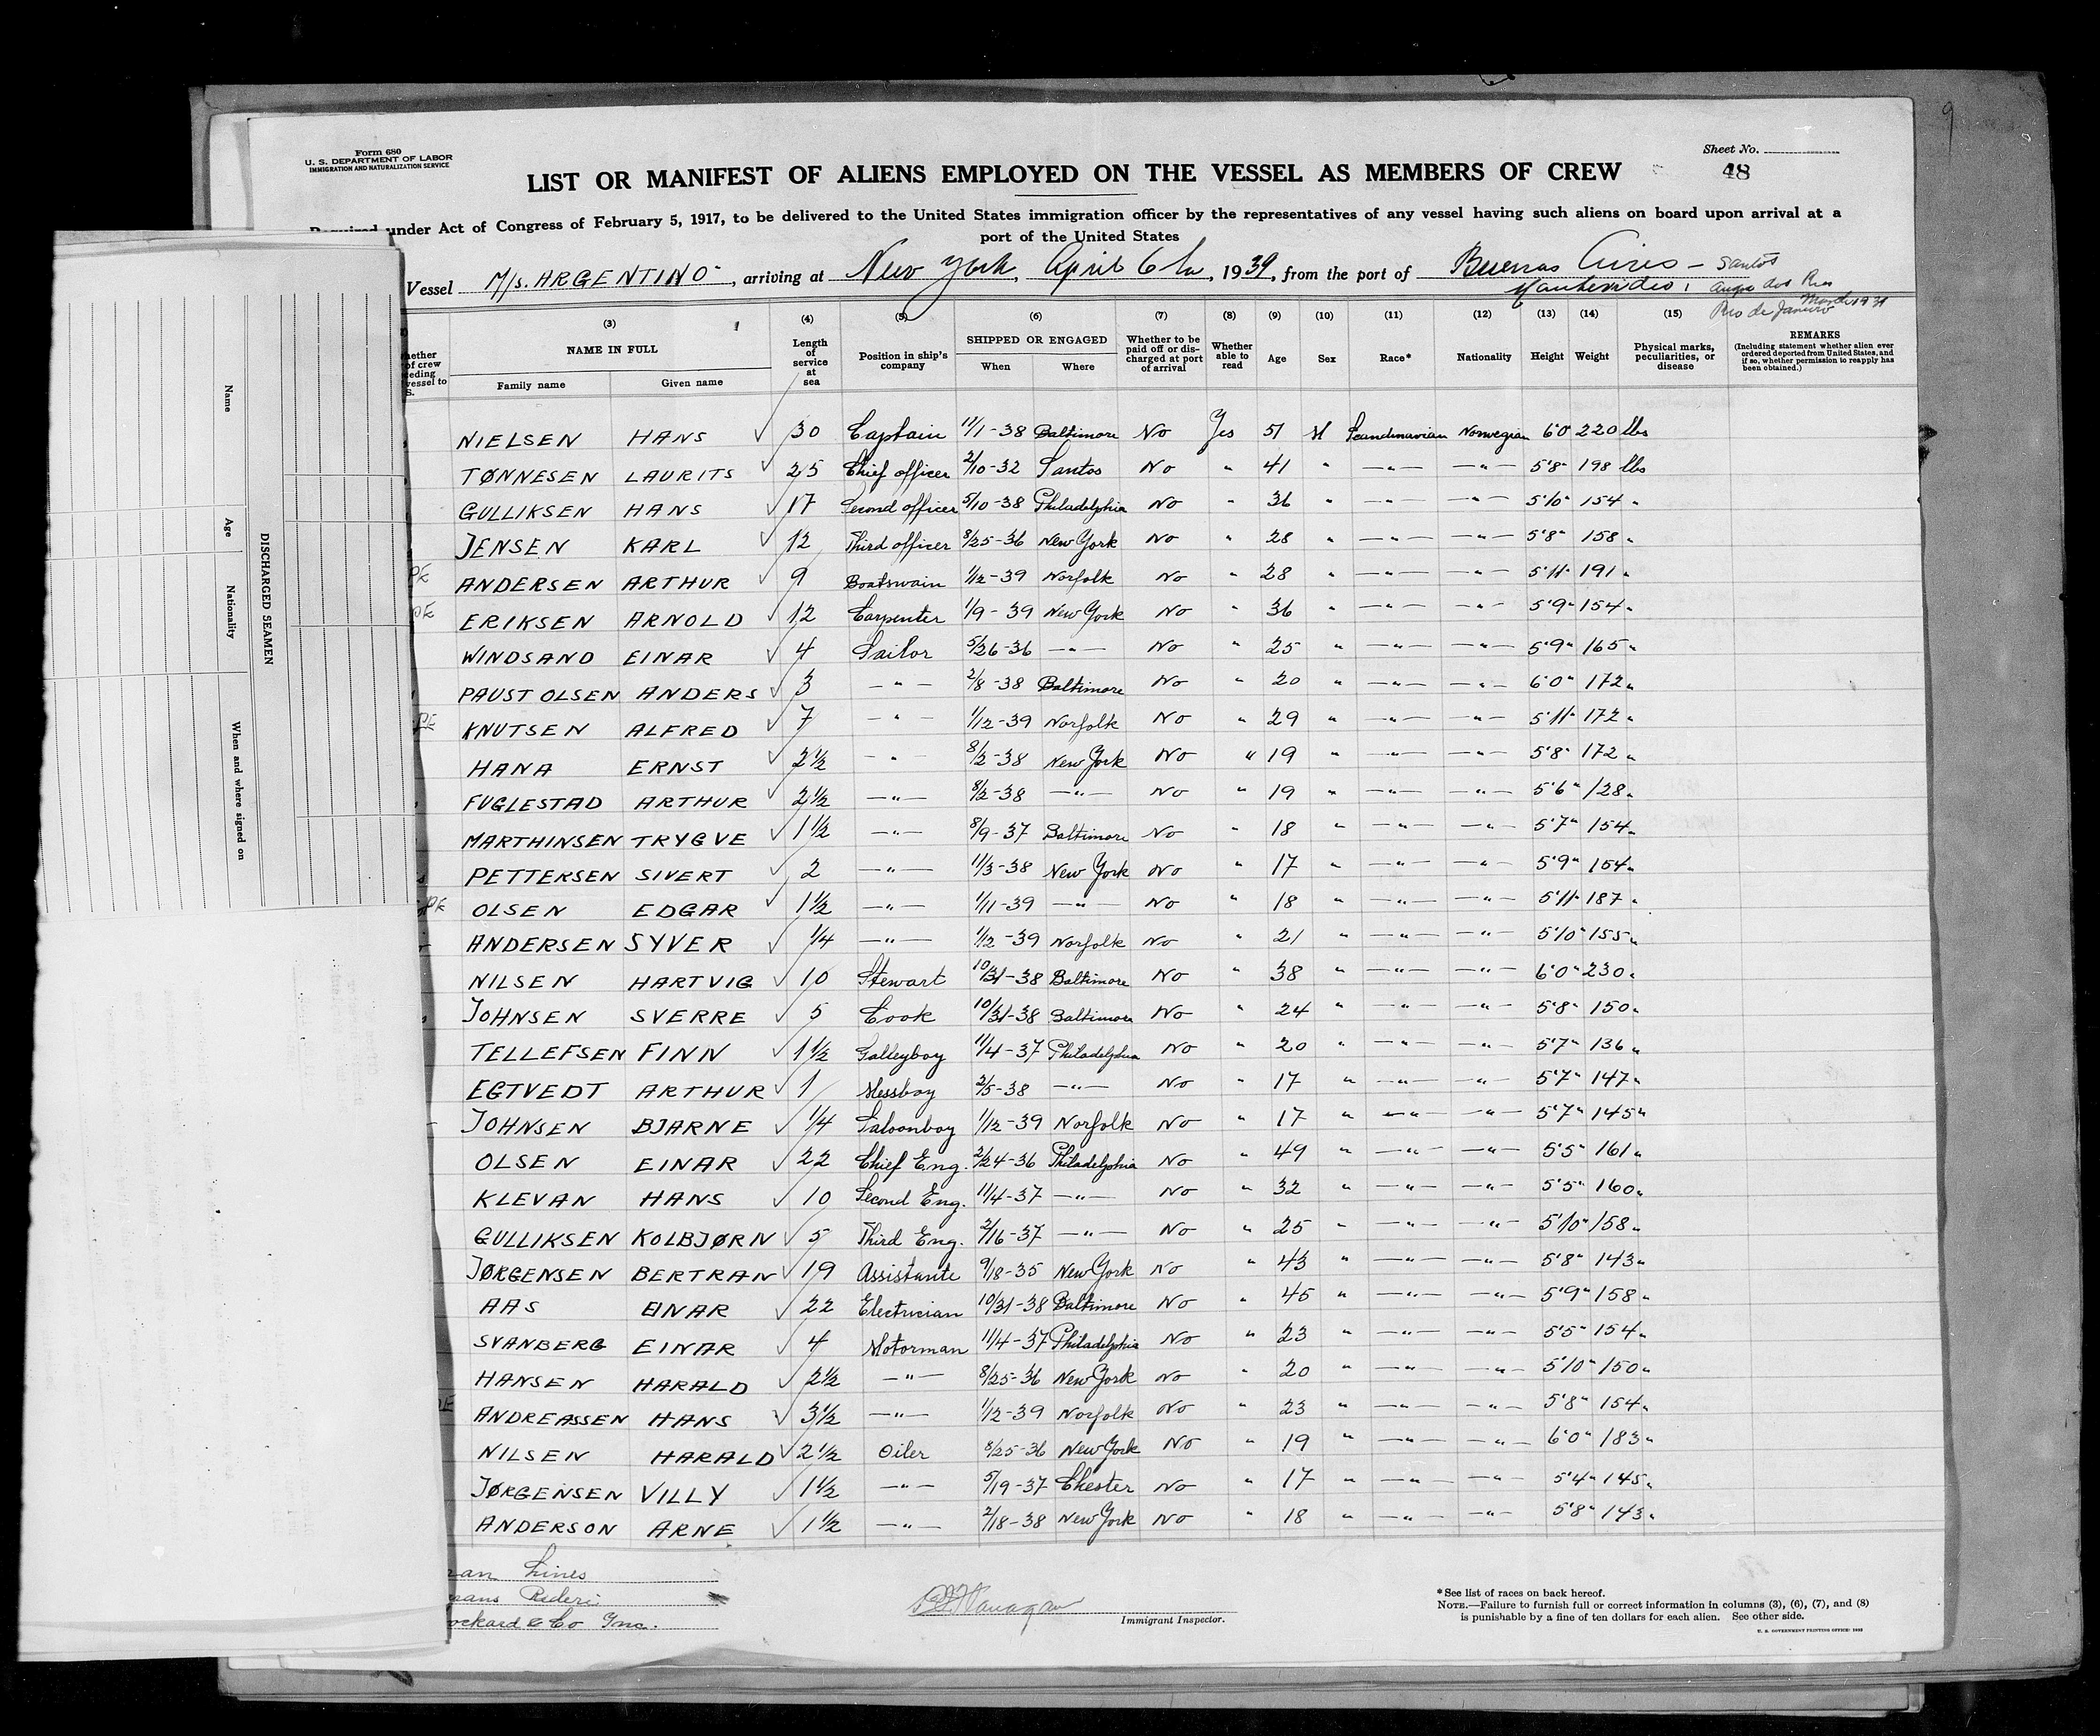 9
Form 680
U. S. DEPARTMENT OF LABOR
IMMIGRATION AND NATURALIZATION SERVICE
Sheet No.
48
LIST OR MANIFEST OF ALIENS EMPLOYED ON THE VESSEL AS MEMBERS OF CREW
Required under Act of Congress of February 5, 1917, to be delivered to the United States immigration officer by the representatives of any vessel having such aliens on board upon arrival at a
port of the United States
Vessel M/s. ARGENTINO, arriving at New York, April 6th, 1939, from the port of Buenos Aires - Santos
Montevideo, Angra dos Reis
Rio de Janeiro March 1939
(3) (4) (5) (6) (7) (8) (9) (10) (11) (12) (13) (14) (15)
NAME IN FULL Family name Given name Length of service at sea Position in ship's company SHIPPED OR ENGAGED When Where Whether to be paid off or discharged at port of arrival Whether able to read Age Sex Race* Nationality Height Weight Physical marks, peculiarities, or disease REMARKS (Including statement whether alien ever ordered deported from United States, and if so, whether permission to reapply has been obtained.)
NIELSEN HANS ✓ 30 Captain 11/1-38 Baltimore No Yes 51 M Scandinavian Norwegian 6'0 220 lbs
TØNNESEN LAURITS ✓ 25 Chief officer 2/10-32 Santos No " 41 " —"— —"— 5'8" 198 lbs
GULLIKSEN HANS ✓ 17 Second officer 5/10-38 Philadelphia No " 36 " —"— —"— 5'10" 154 "
JENSEN KARL ✓ 12 Third officer 8/25-36 New York No " 28 " —"— —"— 5'8" 158 "
PE ANDERSEN ARTHUR ✓ 9 Boatswain 1/12-39 Norfolk No " 28 " —"— —"— 5'11" 191 "
PE ERIKSEN ARNOLD ✓ 12 Carpenter 1/9-39 New York No " 36 " —"— —"— 5'9" 154 "
WINDSAND EINAR ✓ 4 Sailor 5/26-36 —"— No " 25 " —"— —"— 5'9" 165 "
PAUST OLSEN ANDERS ✓ 3 —"— 2/8-38 Baltimore No " 20 " —"— —"— 6'0" 172 "
PE KNUTSEN ALFRED ✓ 7 —"— 1/12-39 Norfolk No " 29 " —"— —"— 5'11" 172 "
HANA ERNST ✓ 2½ —" 8/2-38 New York No " 19 " —"— —"— 5'8" 172 "
FUGLESTAD ARTHUR ✓ 2½ —"— 8/2-38 —"— No " 19 " —"— —"— 5'6" 128 "
MARTHINSEN TRYGVE ✓ 1½ —"— 8/9-37 Baltimore No " 18 " —"— —"— 5'7" 154 "
PETTERSEN SIVERT ✓ 2 —"— 11/3-38 New York No " 17 " —"— —"— 5'9" 154 "
PE OLSEN EDGAR ✓ 1½ —"— 1/11-39 —"— No " 18 " —"— —"— 5'11" 187 "
ANDERSEN SYVER ✓ ¼ —"— 1/12-39 Norfolk No " 21 " —"— —"— 5'10" 155 "
NILSEN HARTVIG ✓ 10 Stewart 10/31-38 Baltimore No " 38 " —"— —"— 6'0" 230 "
JOHNSEN SVERRE ✓ 5 Cook 10/31-38 Baltimore No " 24 " —"— —"— 5'8" 150 "
TELLEFSEN FINN ✓ 1½ Galleyboy 11/4-37 Philadelphia No " 20 " —"— —"— 5'7" 136 "
EGTVEDT ARTHUR ✓ 1 Messboy 2/5-38 —"— No " 17 " —"— —"— 5'7" 147 "
JOHNSEN BJARNE ✓ ¼ Saloonboy 1/12-39 Norfolk No " 17 " —"— —"— 5'7" 145 "
OLSEN EINAR ✓ 22 Chief Eng. 2/24-36 Philadelphia No " 49 " —"— —"— 5'5" 161 "
KLEVAN HANS ✓ 10 Second Eng. 11/4-37 —"— No " 32 " —"— —"— 5'5" 160 "
GULLIKSEN KOLBJØRN ✓ 5 Third Eng. 2/16-37 —"— No " 25 " —"— —"— 5'10" 158 "
JØRGENSEN BERTRAN ✓ 19 Assistante 9/18-35 New York No " 43 " —"— —"— 5'8" 143 "
AAS EINAR ✓ 22 Electrician 10/31-38 Baltimore No " 45 " —"— —"— 5'9" 158 "
SVANBERG EINAR ✓ 4 Motorman 11/4-37 Philadelphia No " 23 " —"— —"— 5'5" 154 "
HANSEN HARALD ✓ 2½ —"— 8/25-36 New York No " 20 " —"— —"— 5'10" 150 "
ANDREASSEN HANS ✓ 3½ —"— 1/12-39 Norfolk No " 23 " —"— —"— 5'8" 154 "
NILSEN HARALD ✓ 2½ Oiler 8/25-36 New York No " 19 " —"— —"— 6'0" 183 "
JØRGENSEN VILLY ✓ 1½ —"— 5/19-37 Chester No " 17 " —"— —"— 5'4" 145 "
ANDERSON ARNE ✓ 1½ —"— 2/18-38 New York No " 18 " —"— —"— 5'8" 143 "
Lines
Rederi
ockard & Co Inc.
Immigrant Inspector.
* See list of races on back hereof.
NOTE.—Failure to furnish full or correct information in columns (3), (6), (7), and (8)
is punishable by a fine of ten dollars for each alien. See other side.
U. S. GOVERNMENT PRINTING OFFICE:
DISCHARGED SEAMEN
Name Age Nationality When and where signed on